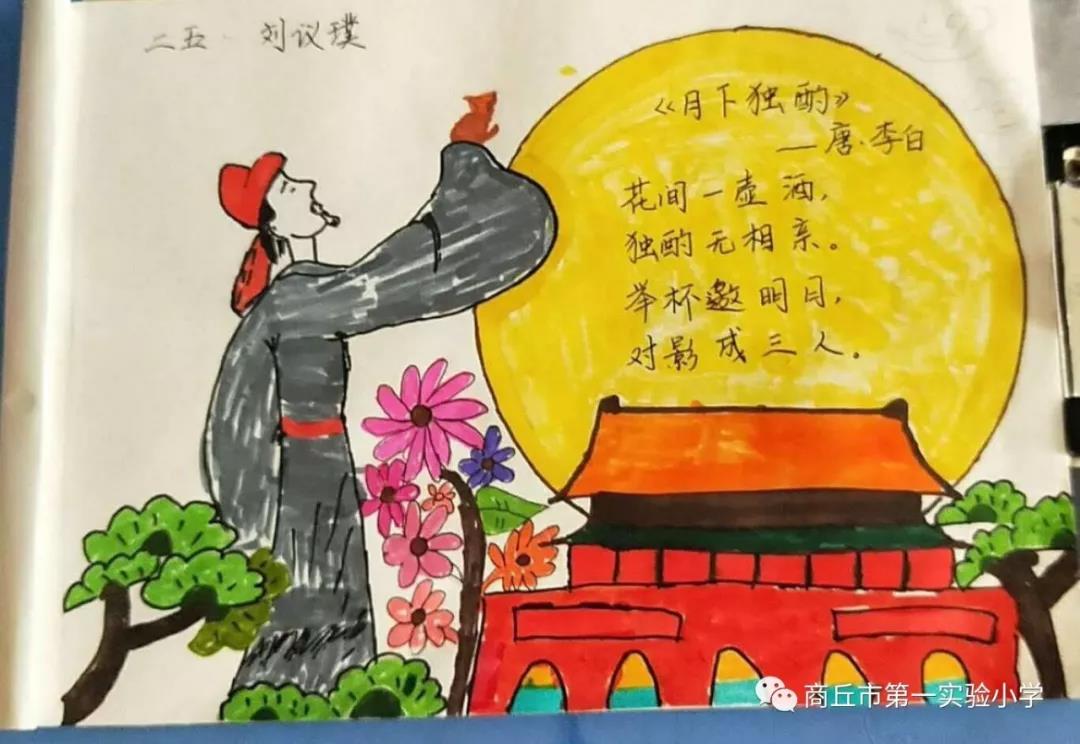 二五 刘议璞
《月下独酌》
—唐·李白
花间一壶酒，
独酌无相亲。
举杯邀明月，
对影成三人。
商丘市第一实验小学